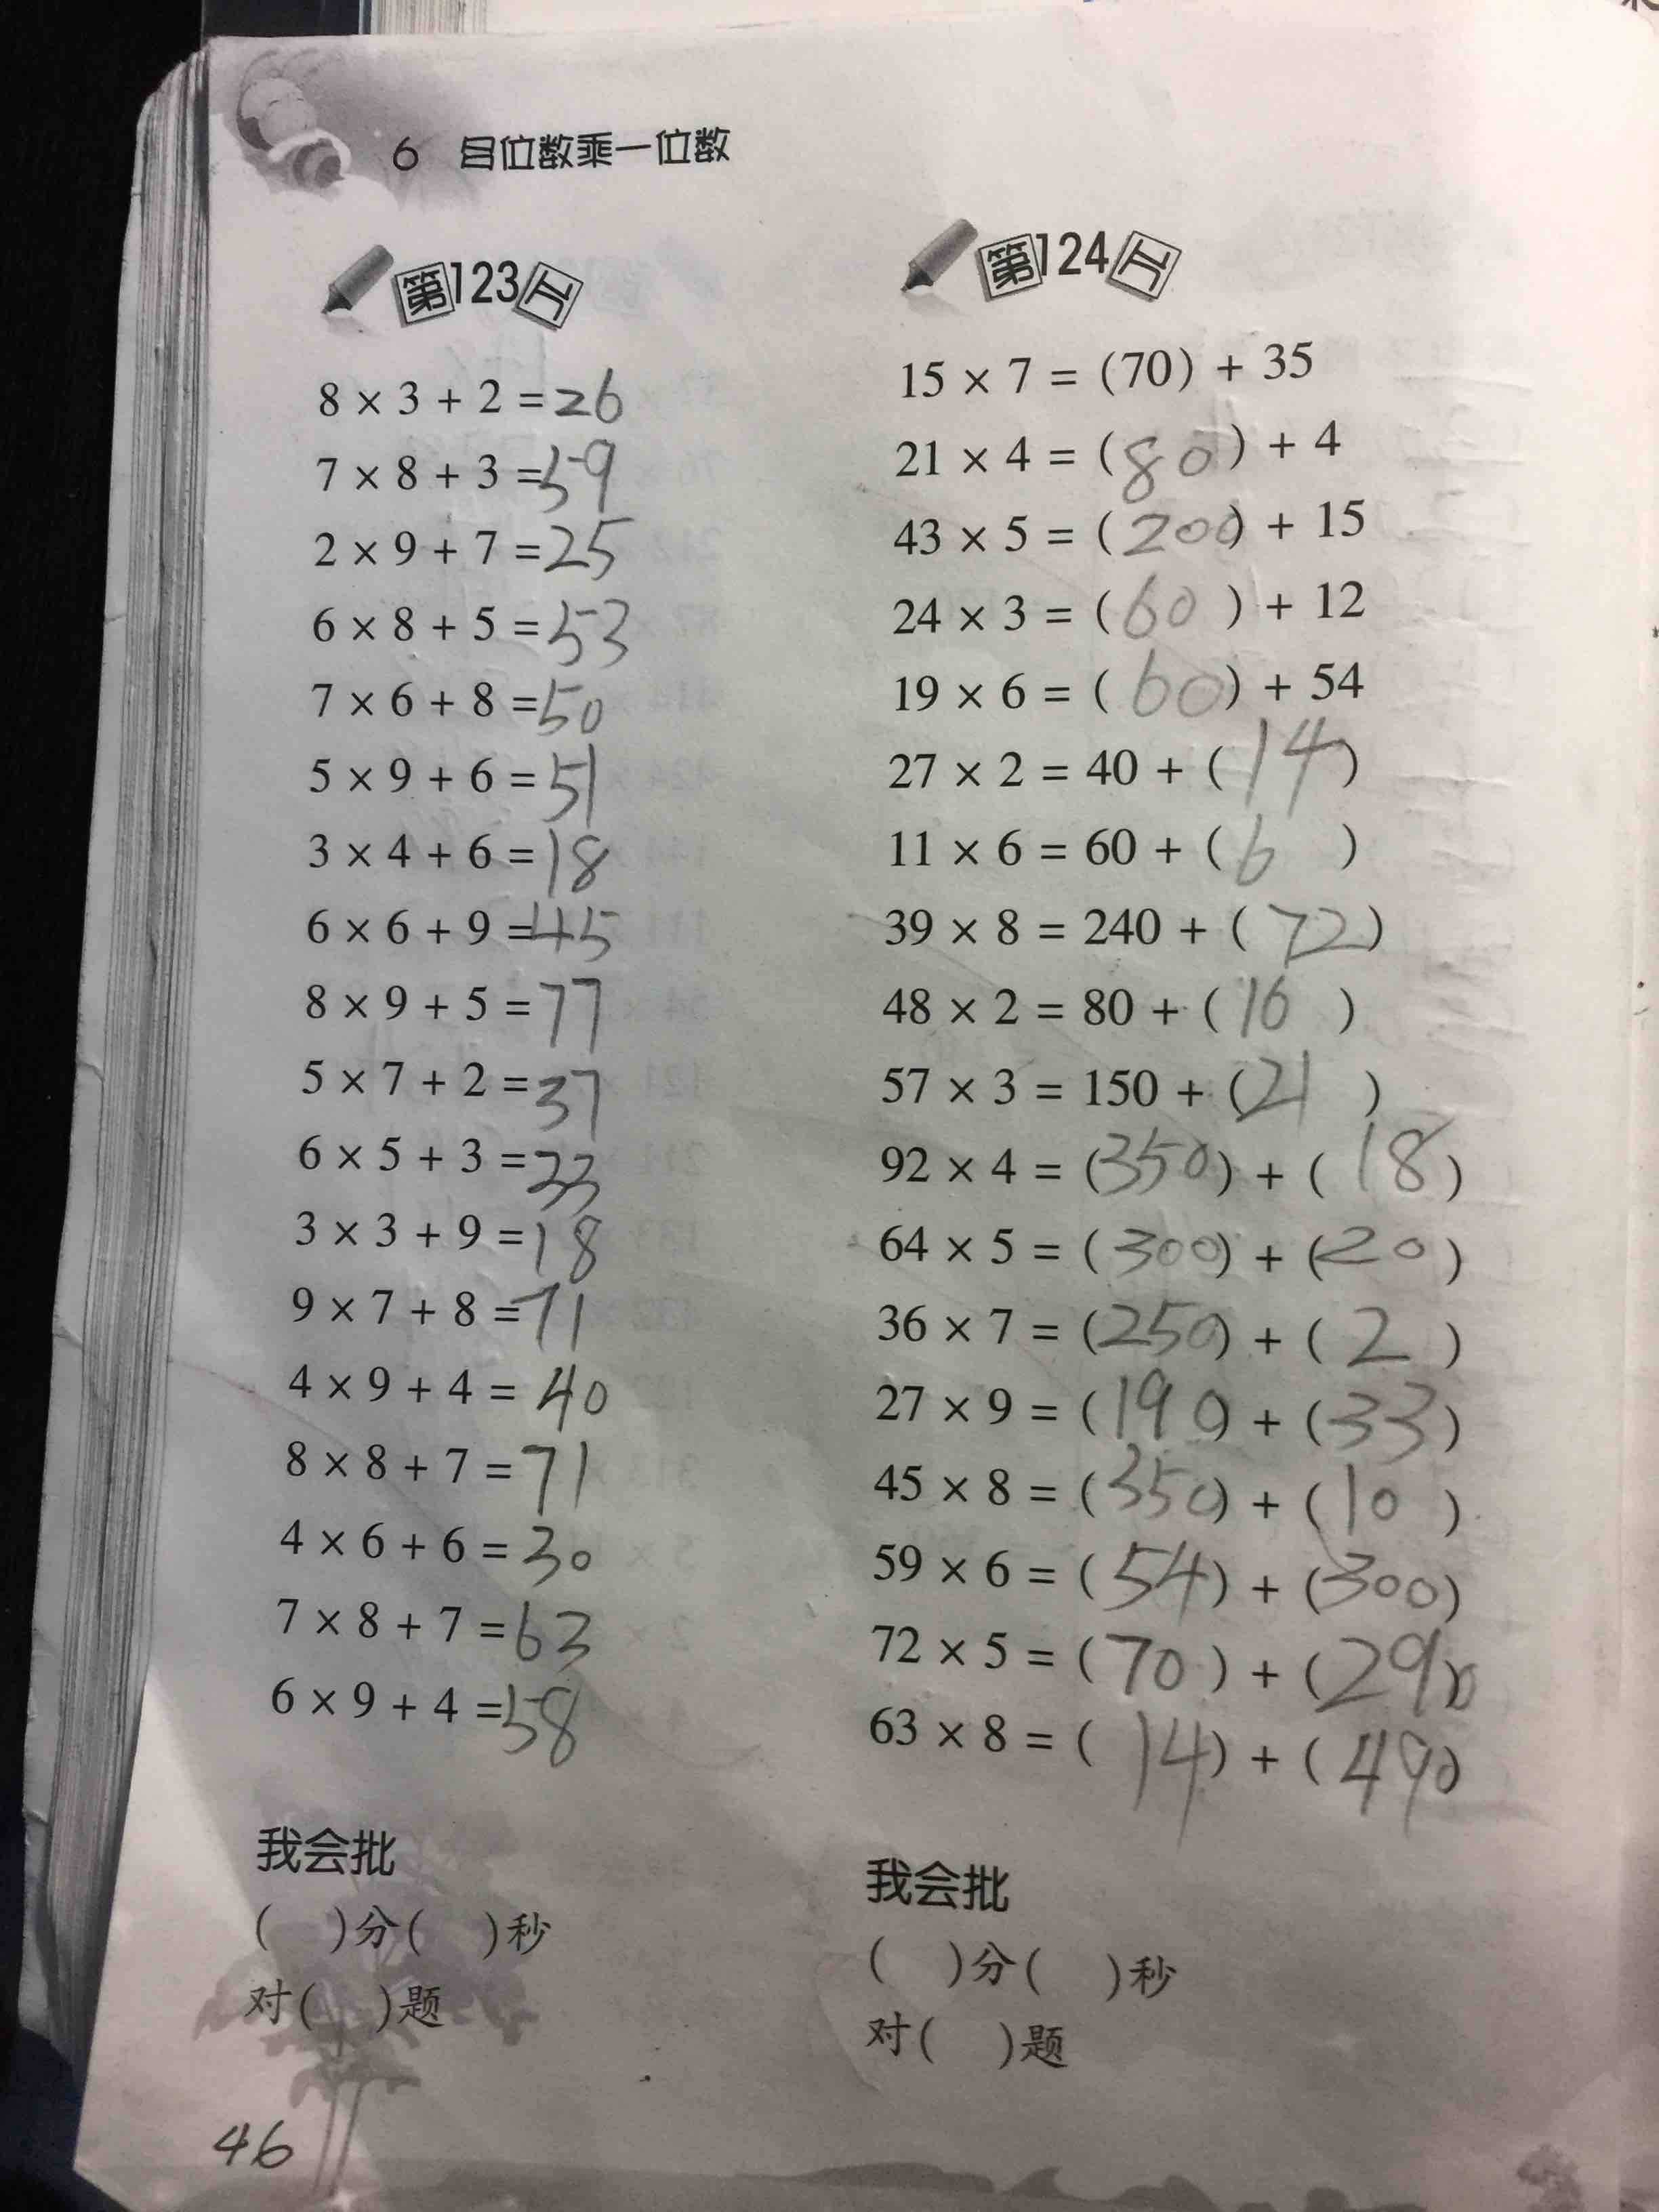 6 多位数乘一位数
第123页
8 × 3 + 2 = 26
7 × 8 + 3 = 59
2 × 9 + 7 = 25
6 × 8 + 5 = 53
7 × 6 + 8 = 50
5 × 9 + 6 = 51
3 × 4 + 6 = 18
6 × 6 + 9 = 45
8 × 9 + 5 = 77
5 × 7 + 2 = 37
6 × 5 + 3 = 33
3 × 3 + 9 = 18
9 × 7 + 8 = 71
4 × 9 + 4 = 40
8 × 8 + 7 = 71
4 × 6 + 6 = 30
7 × 8 + 7 = 63
6 × 9 + 4 = 58
我会批
( )分( )秒
对( )题
第124页
15 × 7 = (70) + 35
21 × 4 = (80) + 4
43 × 5 = (200) + 15
24 × 3 = (60) + 12
19 × 6 = (60) + 54
27 × 2 = 40 + (14)
11 × 6 = 60 + (6)
39 × 8 = 240 + (72)
48 × 2 = 80 + (16)
57 × 3 = 150 + (21)
92 × 4 = (350) + (18)
64 × 5 = (300) + (20)
36 × 7 = (250) + (2)
27 × 9 = (190) + (33)
45 × 8 = (350) + (10)
59 × 6 = (54) + (300)
72 × 5 = (70) + (290)
63 × 8 = (14) + (490)
我会批
( )分( )秒
对( )题
46